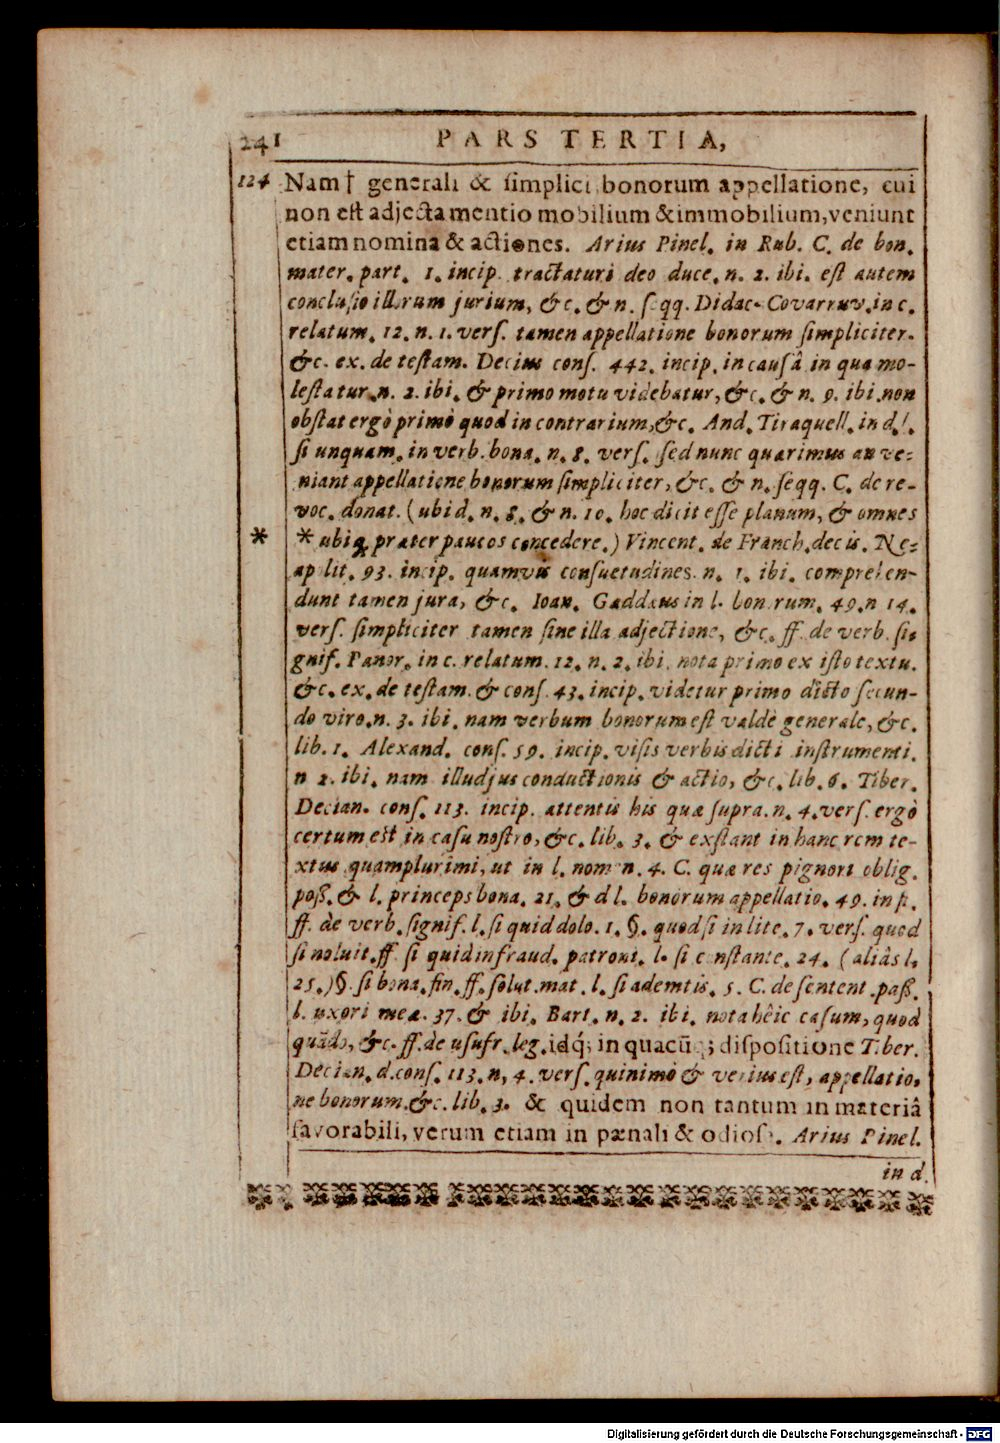 241 PARS TERTIA,
124 Nam† generali & simplici bonorum appellatione, cui
non est adjecta mentio mobilium & immobilium, veniunt
etiam nomina & actiones. Arius Pinel. in Rub. C. de bon.
mater. part. 1. incip. tractaturi deo duce. n. 2. ibi. est autem
conclusio illorum jurium, &c. & n. seqq. Didac. Covarruv. in c.
relatum. 12. n. 1. vers. tamen appellatione bonorum simpliciter.
&c. ex. de testam. Decius cons. 442. incip. in causâ in qua mo-
lestatur. n. 2. ibi. & primo motu videbatur, &c. & n. 9. ibi. non
obstat ergò primò quod in contrarium, &c. And. Tiraquell. in d. l.
si unquam. in verb. bona. n. 8. vers. sed nunc quærimus an ve-
niant appellatione bonorum simpliciter, &c. & n. seqq. C. de re-
voc. donat. (ubi d. n. 8. & n. 10. hoc dicit esse planum, & omnes
* * ubiq; præter paucos concedere.) Vincent. de Franch. decis. Ne-
apolit. 93. incip. quamvis consuetudines. n. 1. ibi. comprehen-
dunt tamen jura, &c. Ioan. Gaddæus in l. bonorum. 49. n 14.
vers. simpliciter tamen sine illa adjectione, &c. ff. de verb. si-
gnif. Panor. in c. relatum. 12. n. 2. ibi. nota primo ex isto textu.
&c. ex. de testam. & cons. 43. incip. videtur primo dicto secun-
do viro. n. 3. ibi. nam verbum bonorum est valdè generale, &c.
lib. 1. Alexand. cons. 59. incip. visis verbis dicti instrumenti.
n 2. ibi. nam illud jus conductionis & actio, &c. lib. 6. Tiber.
Decian. cons. 113. incip. attentis his quæ supra. n. 4. vers. ergò
certum est in casu nostro, &c. lib. 3. & exstant in hanc rem te-
xtus quamplurimi, ut in l. nomen. 4. C. quæ res pignori oblig.
poß. & l. princeps bona. 21. & d l. bonorum appellatio. 49. in p.
ff. de verb. signif. l. si quid dolo. 1. §. quod si in lite. 7. vers. quod
si noluit. ff. si quid in fraud. patroni. l. si constante. 24. (aliàs l.
25.) §. si bona. fin. ff. solut. mat. l. si ademtis. 5. C. de sentent. paß.
l. uxori meæ. 37. & ibi. Bart. n. 2. ibi. nota hêic casum, quod
quãdo, &c. ff. de usufr. leg. idq́; in quacũq; dispositione Tiber.
Decian. d. cons. 113. n, 4. vers. quinimò & verius est, appellatio-
ne bonorum. &c. lib. 3. & quidem non tantum in materiâ
favorabili, verum etiam in pænali & odiosa. Arius Pinel.
in d.
Digitalisierung gefördert durch die Deutsche Forschungsgemeinschaft - DFG